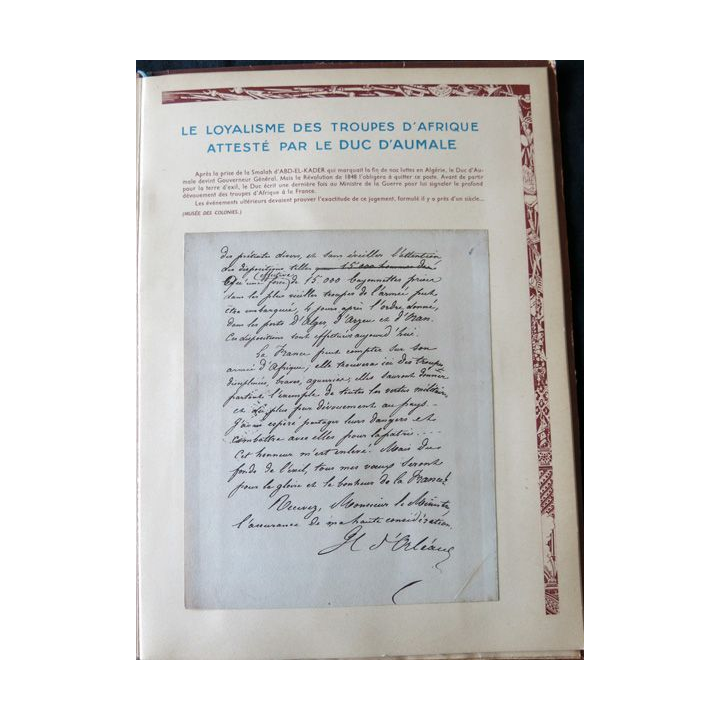 LE LOYALISME DES TROUPES D'AFRIQUE
ATTESTÉ PAR LE DUC D'AUMALE
Après la prise de la Smalah d'ABD-EL-KADER qui marquait la fin de nos luttes en Algérie, le Duc d'Au-
male devint Gouverneur Général. Mais la Révolution de 1848 l'obligera à quitter ce poste. Avant de partir
pour la terre d'exil, le Duc écrit une dernière fois au Ministre de la Guerre pour lui signaler le profond
dévouement des troupes d'Afrique à la France.
Les événements ultérieurs devaient prouver l'exactitude de ce jugement, formulé il y a près d'un siècle...
(MUSÉE DES COLONIES.)
des prétextes divers, et sans éveiller l'attention
des dispositions telles
qu'une force (effective) de 15 000 bayonnettes prises
dans les plus vieilles troupes de l'armée peut
être embarquée, 4 jours après l'ordre donné,
dans les ports d'Alger, d'Arzeu et d'Oran.
Ces dispositions sont effectuées aujourd'hui.
La France peut compter sur son
armée d'Afrique, elle trouvera ici des troupes
disciplinées, braves, aguerries; elles sauront donner
partout l'exemple de toutes les vertus militaires,
et du plus pur dévouement au pays.
J'avais espéré partager leurs dangers et
combattre avec elles pour la patrie....
Cet honneur m'est enlevé. Mais du
fonds de l'exil, tous mes vœux seront
pour la gloire et le bonheur de la France!
Recevez, Monsieur le Ministre,
l'assurance de ma haute considération.
H d'Orléans